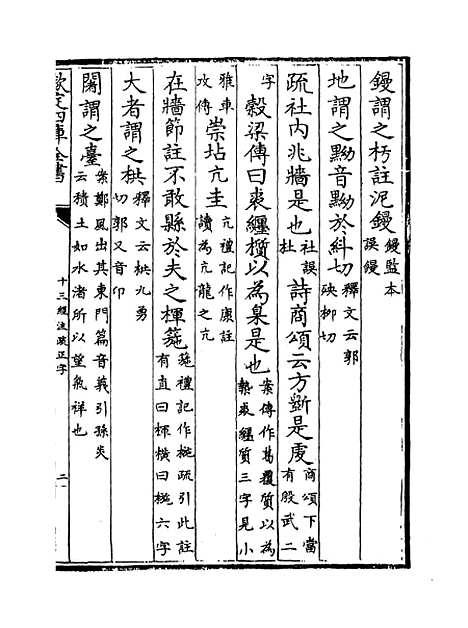 鏝謂之杇註泥鏝鏝監本誤鏝
地謂之黝音黝於糾切釋文云郭殃柳切
疏社内兆牆是也社誤杜詩商頌云方斲是䖍商頌下當有殷武二
字穀梁傳曰裘纒櫍以為臬是也案傳作葛覆質以為㙯裘纒質三字見小
雅車攻傳崇坫亢圭亢禮記作康註讀為亢龍之亢
在牆節註不敢縣於夫之楎箷箷禮記作椸疏引此註有直曰楎横曰椸六字
大者謂之栱釋文云栱九勇切郭又音邛
闍謂之臺案鄭風出其東門篇音義引孫炎云積土如水渚所以望氣祥也
欽定四庫全書
十三經注疏正字
二